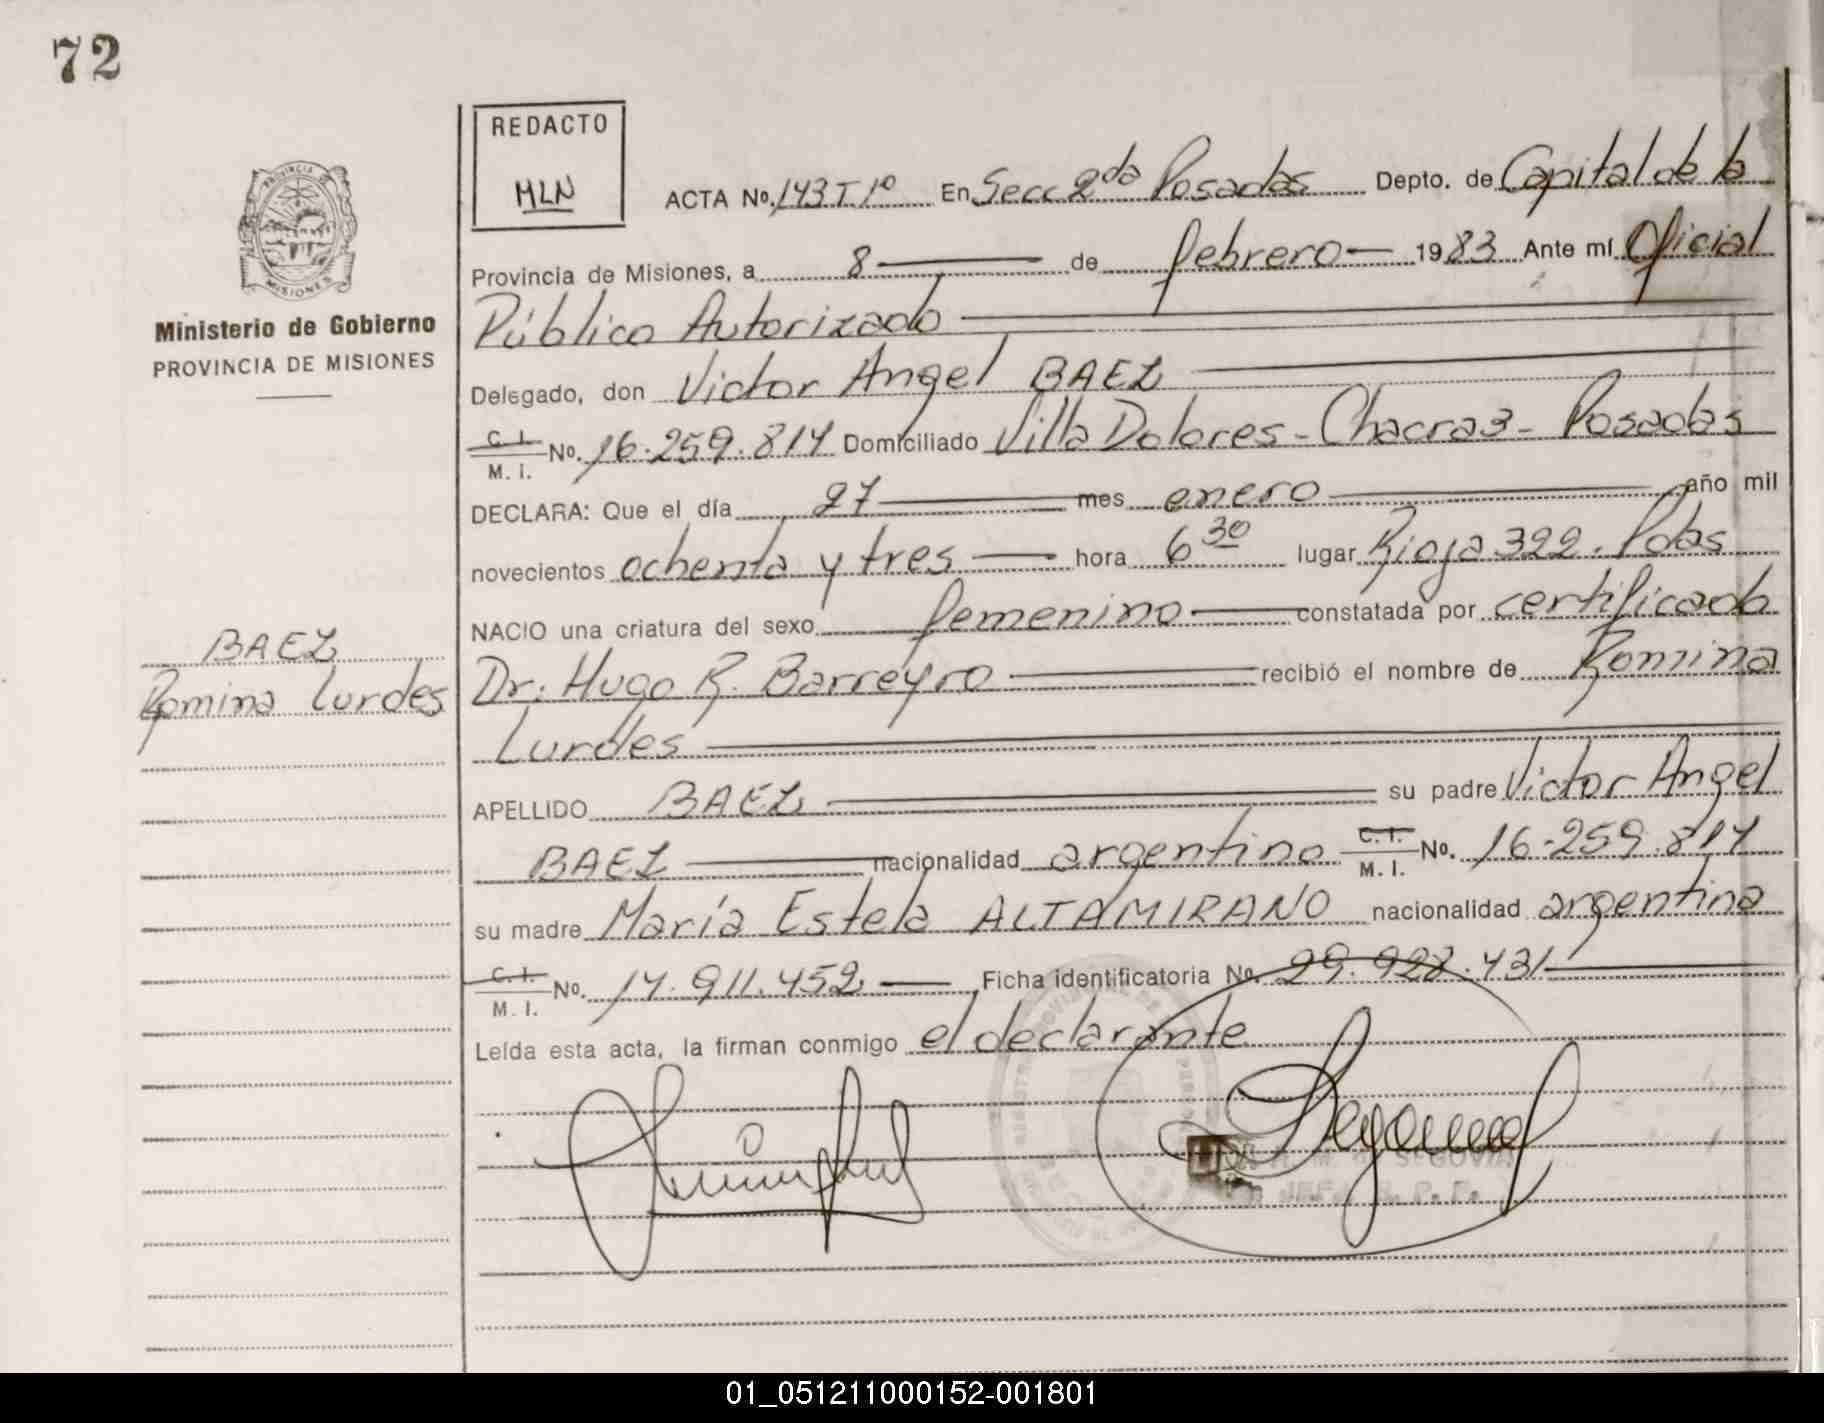 72
REDACTO
MLN
ACTA No. 143 T 1º En Secc 2da Posadas Depto. de Capital de la
Provincia de Misiones, a 8 de febrero 1983 Ante mí Oficial
Público Autorizado
Delegado, don Victor Angel BAEZ
C. I.
M. I. No. 16.259.814 Domiciliado Villa Dolores - Chacra 3 - Posadas
DECLARA: Que el día 27 mes enero año mil
novecientos ochenta y tres hora 6 30 lugar Rioja 322. Pdas
NACIO una criatura del sexo femenino constatada por certificado
Dr. Hugo R. Barreyro recibió el nombre de Romina
Lurdes
APELLIDO BAEZ su padre Victor Angel
BAEZ nacionalidad argentino C. I.
M. I. No. 16.259.814
su madre María Estela ALTAMIRANO nacionalidad argentina
C. I.
M. I. No. 14.911.452 Ficha identificatoria No. 29.928.431
Leída esta acta, la firman conmigo el declarante
SEGOVIA
PROVINCIA
MISIONES
Ministerio de Gobierno
PROVINCIA DE MISIONES
BAEZ
Romina Lurdes
01_051211000152-001801